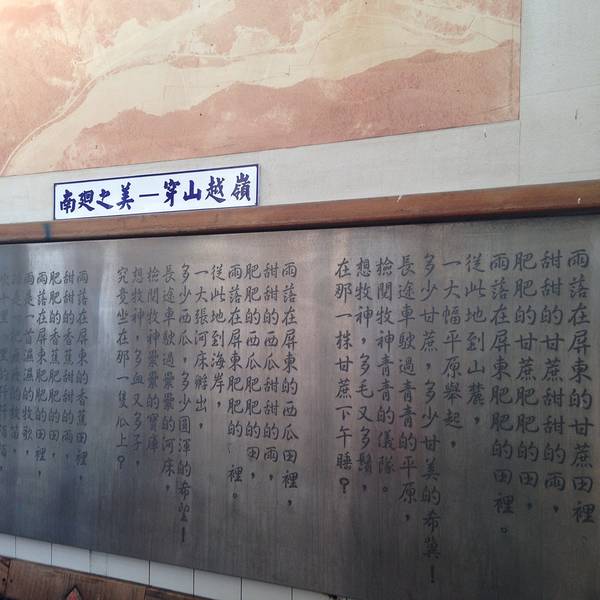 南廻之美—穿山越嶺
雨落在屏東的甘蔗田裡
甜甜的甘蔗甜甜的雨，
肥肥的甘蔗肥肥的田，
雨落在屏東肥肥的田裡。
從此地到山麓，
一大幅平原舉起，
多少甘蔗，多少甘美的希冀！
長途車駛過青青的平原，
檢閱牧神青青的儀隊。
想牧神，多毛又多鬚，
在那一株甘蔗下午睡？
雨落在屏東的西瓜田裡，
甜甜的西瓜甜甜的雨，
肥肥的西瓜肥肥的田，
雨落在屏東肥肥的田裡。
從此地到海岸，
一大張河床孵出，
多少西瓜，多少圓渾的希望！
長途車駛過纍纍的河床，
檢閱牧神纍纍的寶庫
想牧神，多血又多子，
究竟坐在那一隻瓜上？
雨落在屏東的香蕉田裡，
甜甜的香蕉甜甜的雨，
肥肥的香蕉肥肥的田，
雨落在屏東肥肥的田裡，
雨是一首濕濕的牧歌，